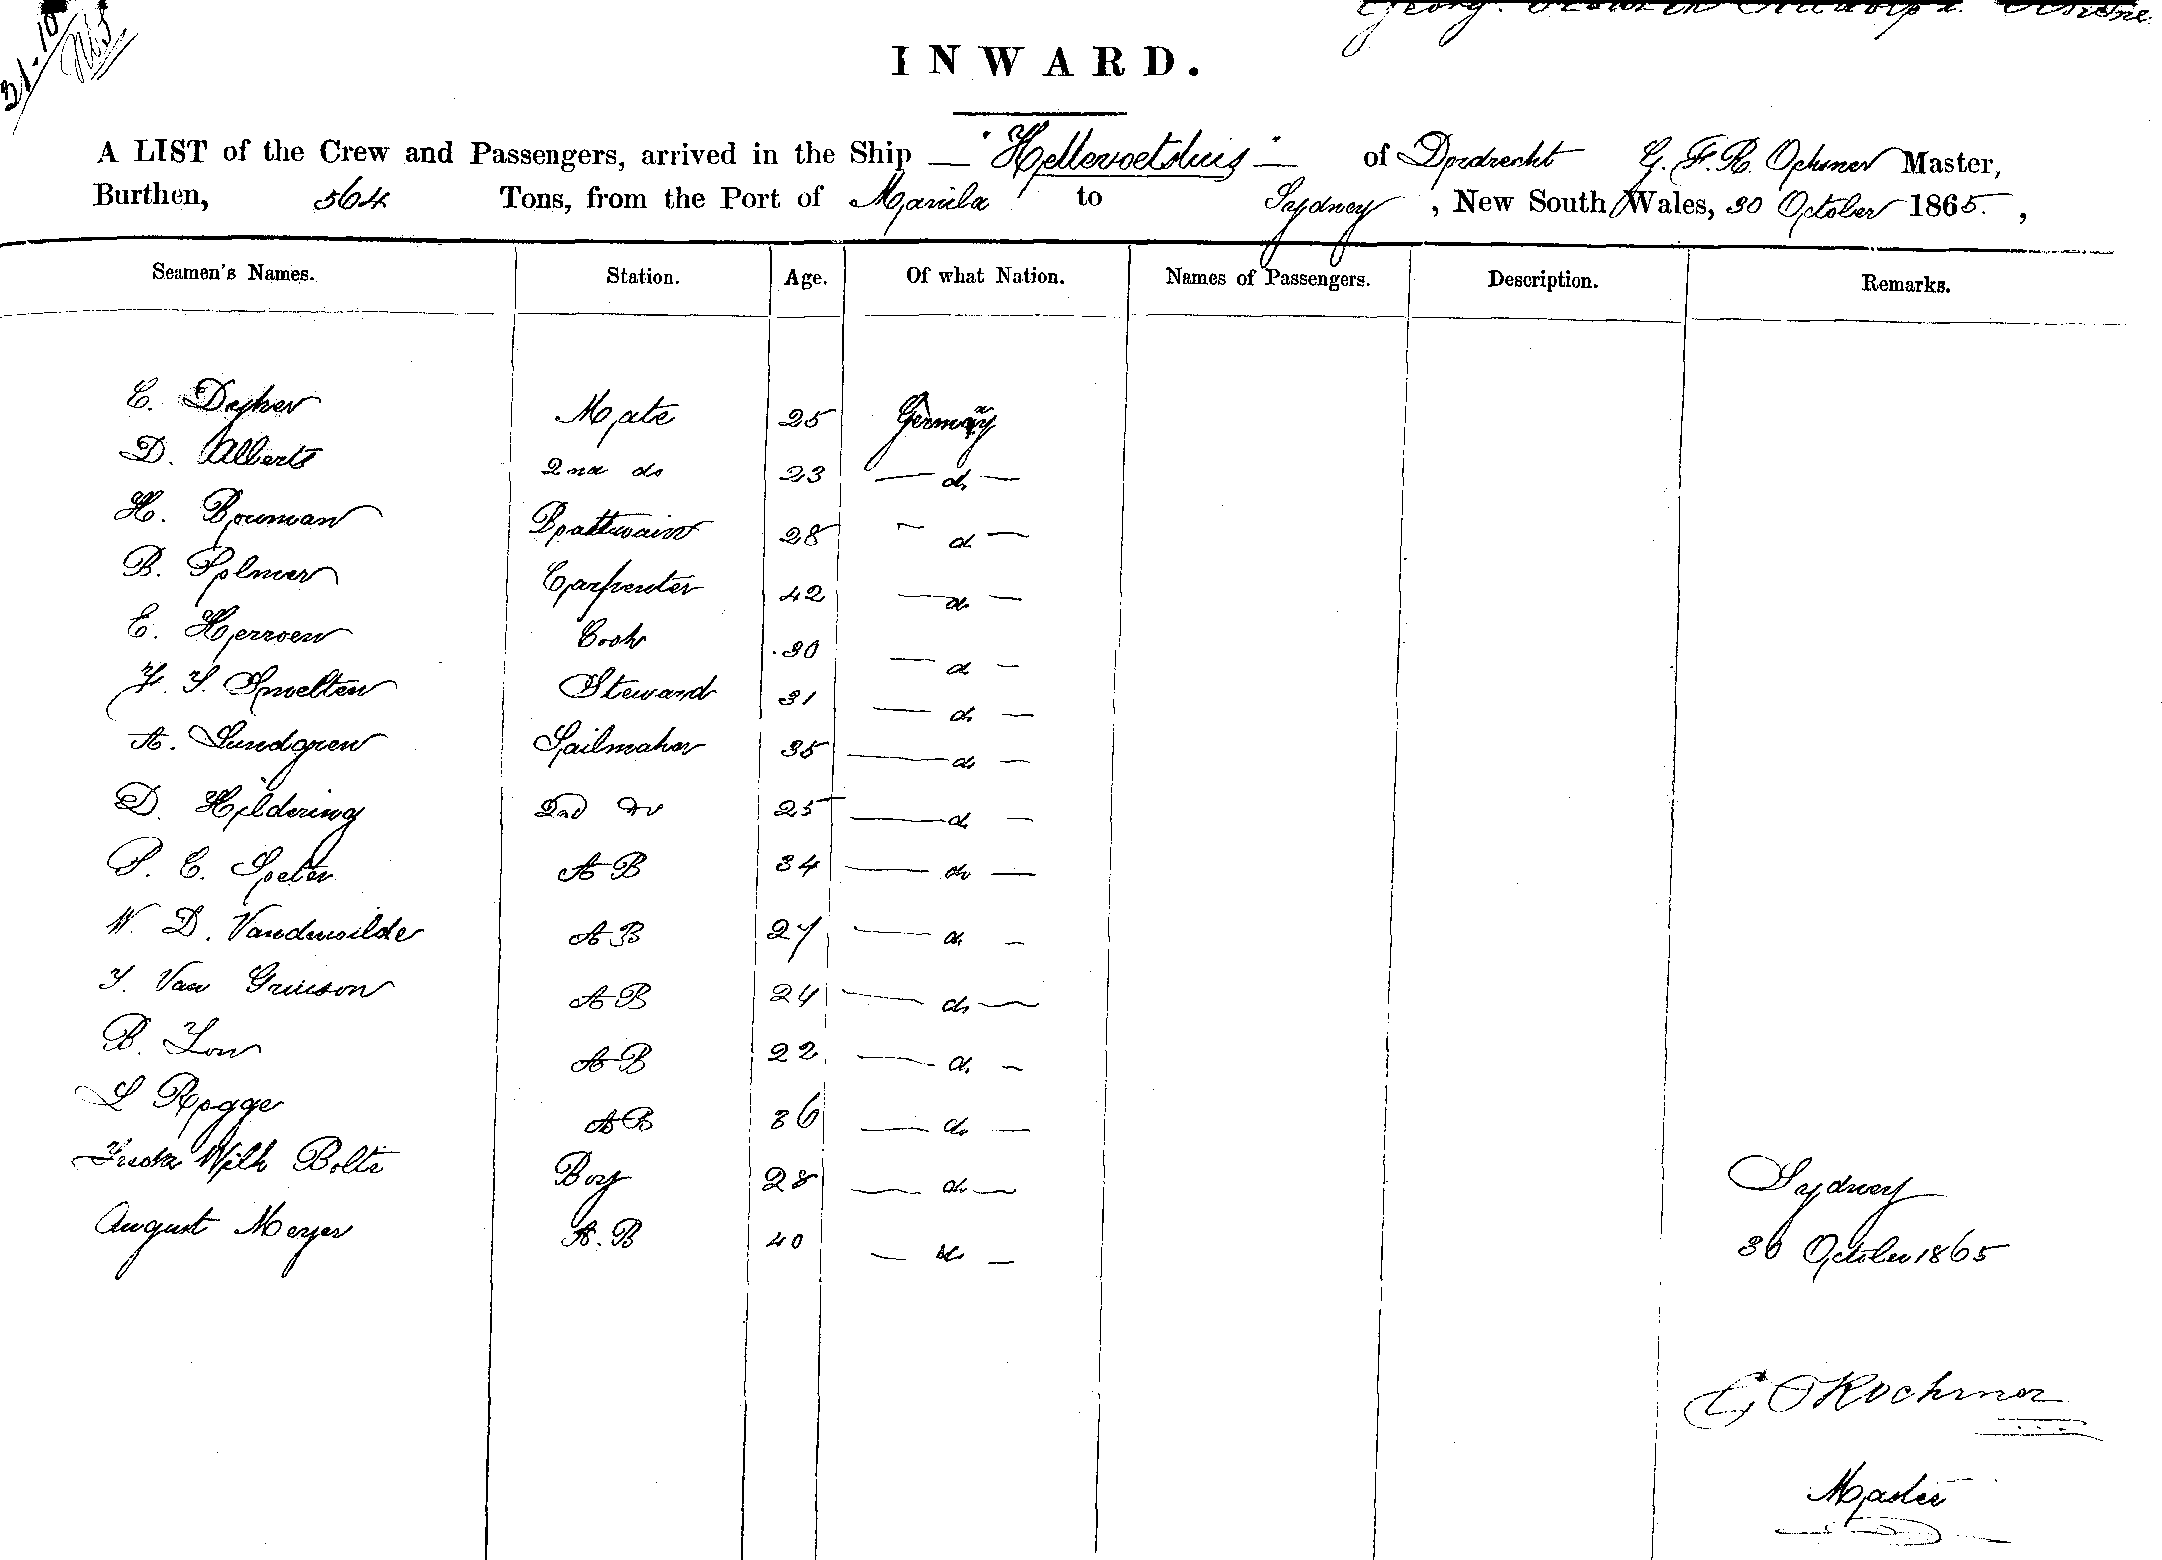 31-10
INWARD.
A LIST of the Crew and Passengers, arrived in the Ship — "Hellevoetsluis" — of Dordrecht G. F. R. Ochsner Master,
Burthen, 564 Tons, from the Port of Manila to Sydney, New South Wales, 30 October 1865.,
Seamen's Names. Station. Age. Of what Nation. Names of Passengers. Description. Remarks.
E. Mate 25 Germany
D. Alberts 2nd do 23 — do —
H. Bouman Boattswain 28 — do —
B. Solmer Carpenter 42 — do —
E. Herroen Cook 30 — do —
Smelten Steward 31 — do —
A. Lundgren Sailmaker 35 — do —
D. Hildering 2nd do 25 — do —
P. C. A B 34 — do —
W. D. Vanderwilde A B 27 — do —
Van A B 24 — do —
B. A B 22 — do —
L Rogge A B 36 — do —
Wilh Bolte Boy 28 — do — Sydney
August Meyer A. B 40 — do — 30 October 1865
G F R Ochsner
Master